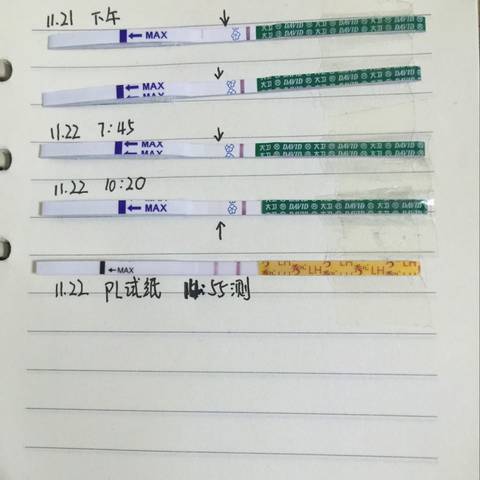 11.21 下午
← MAX 大卫 DAVID 大卫 DAVID 大卫 DAVID 大卫
← MAX
← MAX 大卫 DAVID 大卫 DAVID 大卫 DAVID 大卫
11.22 7:45
← MAX
← MAX 大卫 DAVID 大卫 DAVID 大卫 DAVID 大卫
11.22 10:20
← MAX
← MAX 大卫 DAVID 大卫 DAVID 大卫 DAVID 大卫
←MAX LH LH LH
11.22 PL试纸 :55测